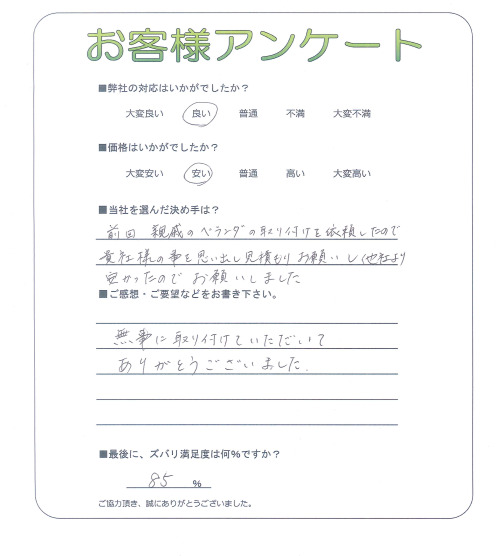 お客様アンケート
■弊社の対応はいかがでしたか？
大変良い 良い 普通 不満 大変不満
■価格はいかがでしたか？
大変安い 安い 普通 高い 大変高い
■当社を選んだ決め手は？
前回 親戚のベランダの取り付けを依頼したので
貴社様の事を思い出し見積もりお願いし、他社より
安かったので お願いしました
■ご感想・ご要望などをお書き下さい。
無事に取り付けていただいて
ありがとうございました.
■最後に、ズバリ満足度は何%ですか？
85 %
ご協力頂き、誠にありがとうございました。